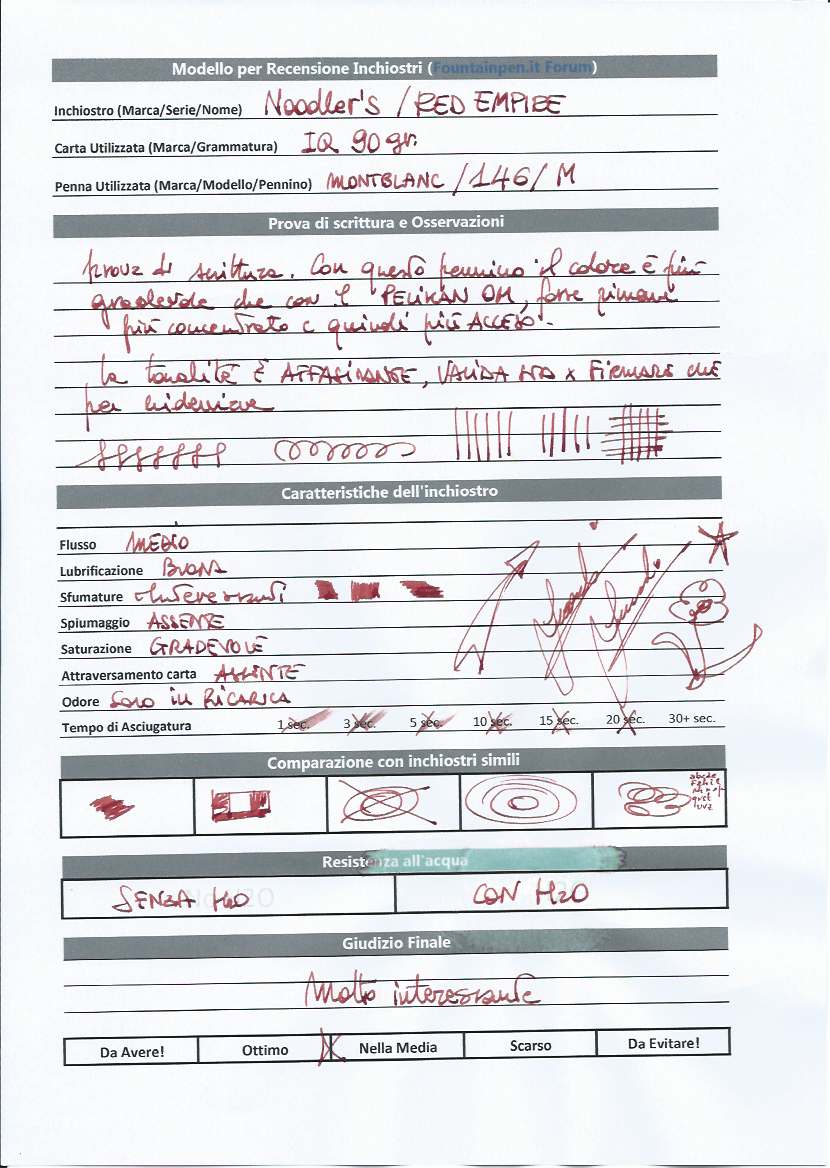 Modello per Recensione Inchiostri (Fountainpen.it Forum)
Inchiostro (Marca/Serie/Nome) Noodler's / RED EMPIRE
Carta Utilizzata (Marca/Grammatura) IQ 90 gr.
Penna Utilizzata (Marca/Modello/Pennino) MONTBLANC / 146 / M
Prova di scrittura e Osservazioni
prova di scrittura. Con questo pennino il colore è più
gradevole che con il PELIKAN OM, forse rimane
più concentrato e quindi più ACCESO.
La tonalità È AFFASCINANTE, VALIDA x FIRMARE CHE
per
Caratteristiche dell'inchiostro
Flusso MEDIO
Lubrificazione BUONA
Sfumature Interessanti
Spiumaggio ASSENTE
Saturazione GRADEVOLE
Attraversamento carta ASSENTE
Odore SOLO IN RICARICA
Tempo di Asciugatura 1 sec. 3 sec. 5 sec. 10 sec. 15 sec. 20 sec. 30+ sec.
Comparazione con inchiostri simili
Resistenza all'acqua
SENZA H2O CON H2O
Giudizio Finale
Molto interessante
Da Avere! Ottimo Nella Media Scarso Da Evitare!